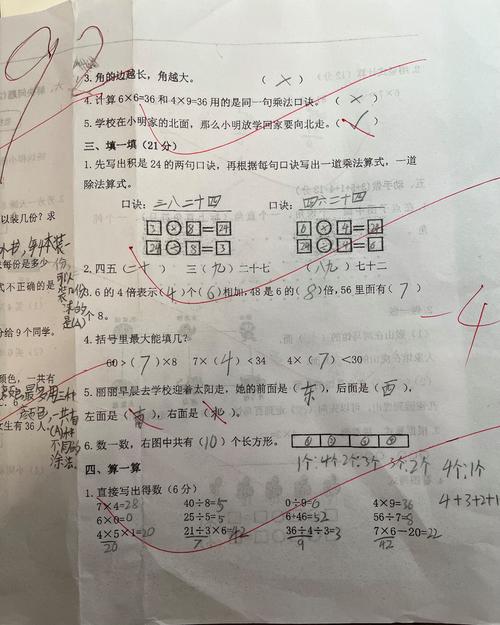 92
3. 角的边越长，角越大。 （ × ）
4. 计算 6×6=36 和 4×9=36 用的是同一句乘法口诀。（ × ）
5. 学校在小明家的北面，那么小明放学回家要向北走。（ ）
三、填一填（21 分）
1. 先写出积是 24 的两句口诀，再根据每句口诀写出一道乘法算式，一道
除法算式。
口诀：三八二十四 口诀：四六二十四
3×8=24 6×4=24
24÷8=3 24÷4=6
2. 四五（二十） 三（九）二十七 （八九）七十二
3. 6 的 4 倍表示（4）个（6）相加，48 是 6 的（8）倍，56 里面有（7）
个 8。
4. 括号里最大能填几？
60＞（7）×8 7×（4）＜34 4×（7）＜30
5. 丽丽早晨去学校迎着太阳走，她的前面是（东），后面是（西），
左面是（南），右面是（北）。
-4
6. 数一数，右图中共有（10）个长方形。
1个:4个 2个:3个 3个:2个 4个:1个
4+3+2+1
四、算一算
1. 直接写出得数（6 分）
7×4=28 40÷8=5 0÷9=0 4×9=36
6×0=0 25÷5=5 6+46=52 56÷7=8
4×5×1=20 21÷3×6=42 36÷4÷3=3 7×6－20=22
20 7 9 42
以装几份？求
求每份是多少
式不正确的是
分给 9 个同学。
颜色，一共有
女生有 36 人